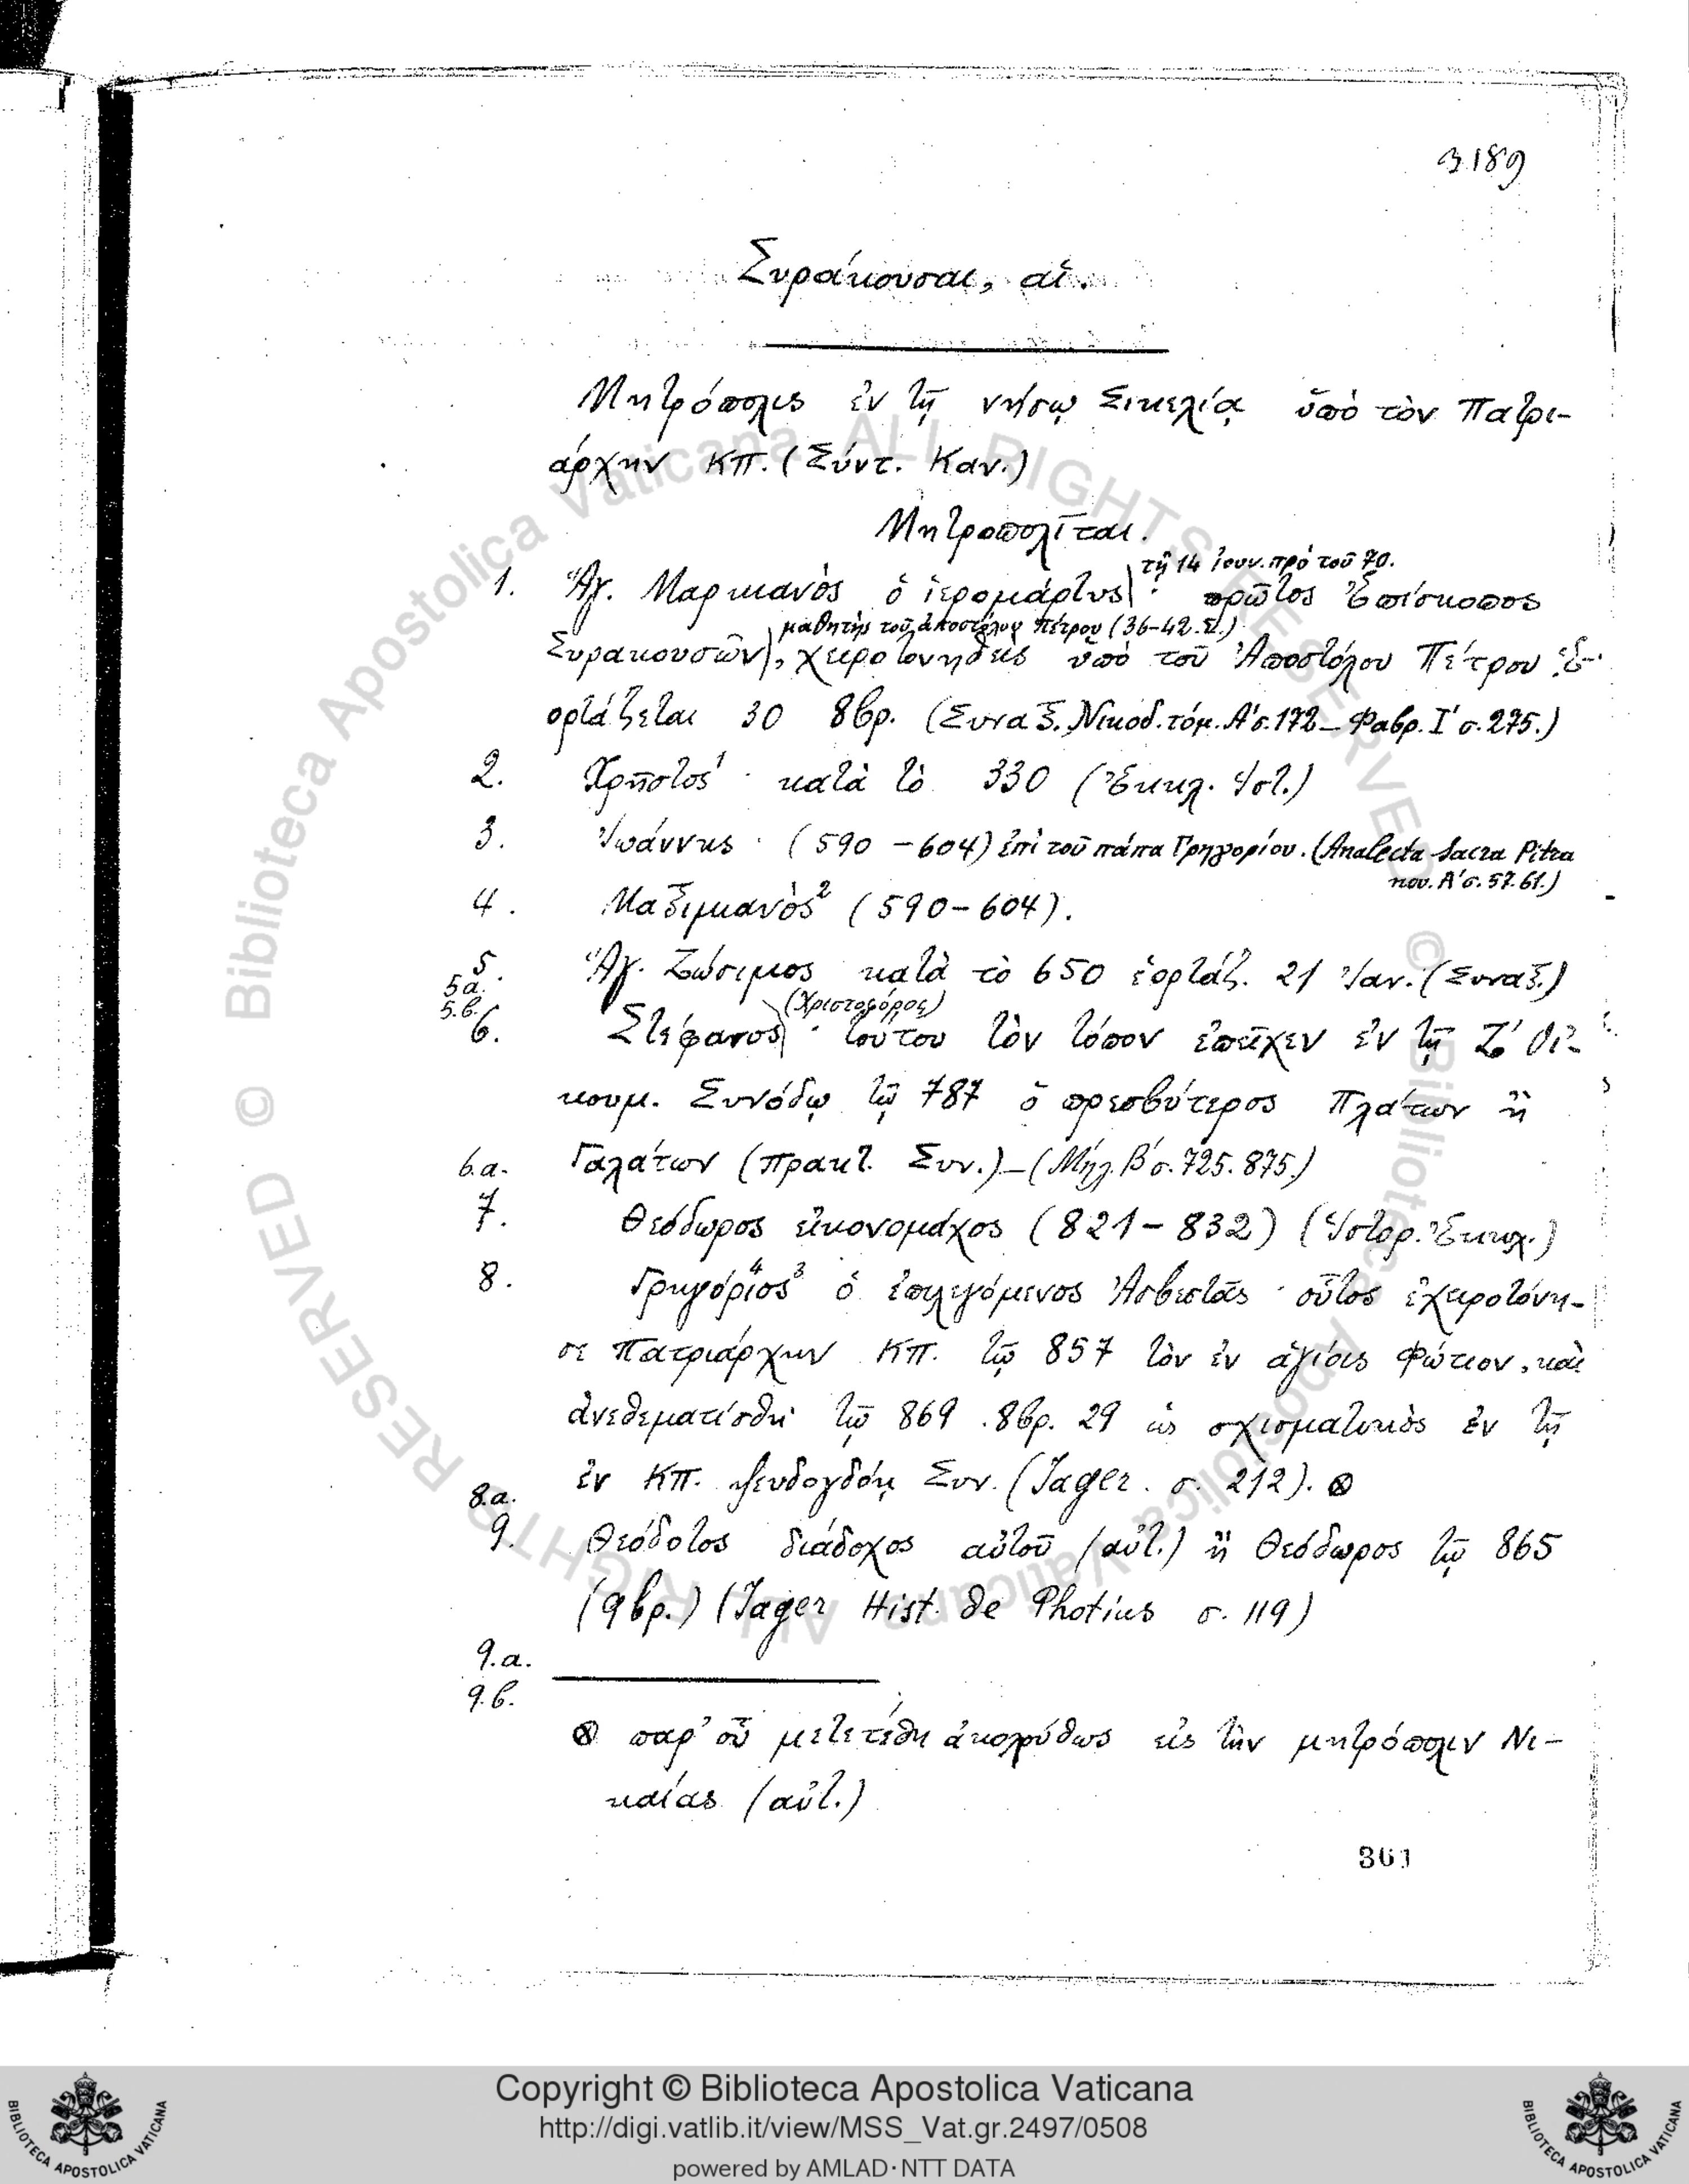 3189
Συράκουσαι, αἱ.
Μητρόπολις ἐν τῇ νήσῳ Σικελίᾳ ὑπὸ τὸν Πατρι-
άρχην ΚΠ. (Σύντ. Καν.)
Μητροπολῖται.
τῇ 14 Ἰουν. πρὸ τοῦ 70.
1. Ἅγ. Μαρκιανὸς ὁ ἱερομάρτυς · πρῶτος Ἐπίσκοπος
μαθητὴς τοῦ ἀποστόλου Πέτρου (36-42.Σ.)
Συρακουσῶν, χειροτονηθεὶς ὑπὸ τοῦ Ἀποστόλου Πέτρου ἑ-
ορτάζεται 30 8βρ. (Συναξ. Νικοδ. τόμ. Α' σ. 172 – Φαβρ. Ι' σ. 275.)
2. Χρῆστος¹ · κατὰ τὸ 330 (Ἐκκλ. Ἱστ.)
3. Ἰωάννης · (590 – 604) ἐπὶ τοῦ πάπα Γρηγορίου. (Analecta Sacra Pitra
nov. Α' σ. 57. 61.)
4. Μαξιμιανὸς² (590 – 604).
5. Ἅγ. Ζώσιμος κατὰ τὸ 650 ἑορτάζ. 21 Ἰαν. (Συναξ.)
5α.
5.β. (Χριστοφόρος)
6. Στέφανος · τούτου τὸν τόπον ἐπεῖχεν ἐν τῇ Ζ' Οἰ-
κουμ. Συνόδῳ τῷ 787 ὁ πρεσβύτερος Πλάτων ἢ
6.α. Γαλάτων (Πρακτ. Συν.) – (Μήλ. Β' σ. 725. 875.)
7. Θεόδωρος εἰκονομάχος (821 – 832) (Ἱστορ. Ἐκκλ.)
8. Γρηγόριος⁴ ³ ὁ ἐπιλεγόμενος Ἀσβεστᾶς · οὗτος ἐχειροτόνη-
σε Πατριάρχην ΚΠ. τῷ 857 τὸν ἐν ἁγίοις Φώτιον, καὶ
ἀνεθεματίσθη τῷ 869 . 8βρ. 29 ὡς σχισματικὸς ἐν τῇ
ἐν ΚΠ. ψευδογδόῃ Συν. (Jager . σ. 212). ⊗
8.α.
9. Θεόδοτος διάδοχος αὐτοῦ (αὐτ.) ἢ Θεόδωρος τῷ 865
(9βρ.) (Jager Hist. de Photius σ. 119)
9.α.
9.β.
⊗ παρ' οὗ μετετέθη ἀκολούθως εἰς τὴν μητρόπολιν Νι-
καίας (αὐτ.)
361
Copyright © Biblioteca Apostolica Vaticana
http://digi.vatlib.it/view/MSS_Vat.gr.2497/0508
powered by AMLAD·NTT DATA
BIBLIOTECA APOSTOLICA VATICANA
BIBLIOTECA APOSTOLICA VATICANA
© Biblioteca Apostolica Vaticana ALL RIGHTS RESERVED
© Biblioteca Apostolica Vaticana ALL RIGHTS RESERVED